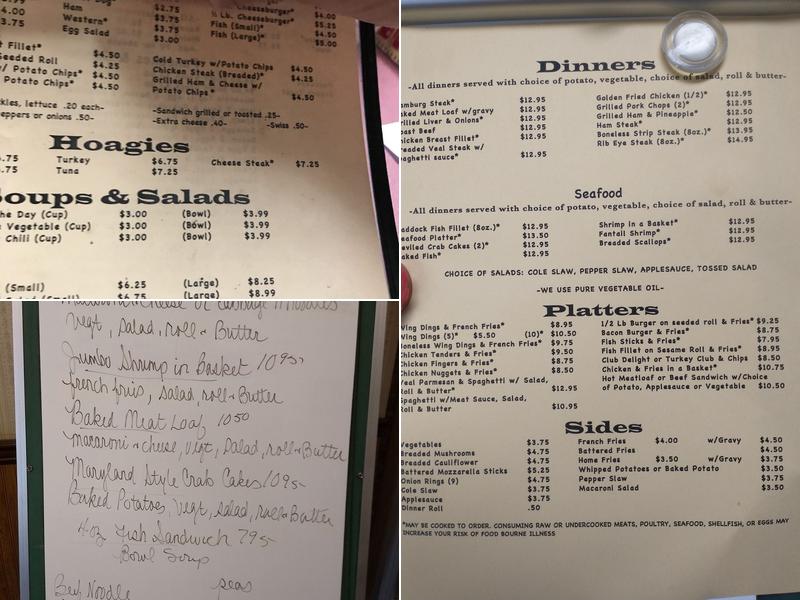 4.00 Ham $2.75 ½ Lb. Cheeseburger* $4.00
3.75 Western* $3.75 Fish (Small)* $5.25
Egg Salad $3.00 Fish (Large)* $5.00
Fillet*
Seeded Roll $4.50 Cold Turkey w/Potato Chips $4.50
w/ Potato Chips* $4.25 Chicken Steak (Breaded)* $4.25
Potato Chips* $4.50 Grilled Ham & Cheese w/
Potato Chips* $4.50
lettuce .20 each- -Sandwich grilled or toasted .25-
peppers or onions .50- -Extra cheese .40- -Swiss .50-
Hoagies
.75 Turkey $6.75 Cheese Steak* $7.25
.75 Tuna $7.25
Soups & Salads
the Day (Cup) $3.00 (Bowl) $3.99
Vegetable (Cup) $3.00 (Bowl) $3.99
Chili (Cup) $3.00 (Bowl) $3.99
(Small) $6.25 (Large) $8.25
(Small) $6.75 (Large) $8.99
Vegt, Salad, roll & Butter
Jumbo Shrimp in Basket 10 95
french fries, salad, roll & Butter
Baked Meat Loaf 10 50
macaroni & cheese, Vegt, Salad, roll & Butter
Maryland Style Crab Cakes 10 95
Baked Potatoes, Vegt, salad, roll & Butter
4oz Fish Sandwich 7 95
Bowl Soup
Beef Noodle peas
Dinners
-All dinners served with choice of potato, vegetable, choice of salad, roll & butter-
amburg Steak* $12.95 Golden Fried Chicken (1/2)* $12.95
aked Meat Loaf w/gravy $12.95 Grilled Pork Chops (2)* $12.95
rilled Liver & Onions* $12.95 Grilled Ham & Pineapple* $12.50
oast Beef $12.95 Ham Steak* $12.95
hicken Breast Fillet* $12.95 Boneless Strip Steak (8oz.)* $13.95
readed Veal Steak w/ Rib Eye Steak (8oz.)* $14.95
paghetti sauce* $12.95
Seafood
-All dinners served with choice of potato, vegetable, choice of salad, roll & butter-
addock Fish Fillet (8oz)* $12.95 Shrimp In a Basket* $12.95
eafood Platter* $13.50 Fantail Shrimp* $12.95
eviled Crab Cakes (2)* $12.95 Breaded Scallops* $12.95
aked Fish* $12.95
CHOICE OF SALADS: COLE SLAW, PEPPER SLAW, APPLESAUCE, TOSSED SALAD
-WE USE PURE VEGETABLE OIL-
Platters
Wing Dings & French Fries* $8.95 1/2 Lb Burger on seeded roll & Fries* $9.25
Wing Dings (5)* $5.50 (10)* $10.50 Bacon Burger & Fries* $8.75
Boneless Wing Dings & French Fries* $9.75 Fish Sticks & Fries* $7.95
Chicken Tenders & Fries* $9.50 Fish Fillet on Sesame Roll & Fries* $8.95
Chicken Fingers & Fries* $8.75 Club Delight or Turkey Club & Chips $8.50
Chicken Nuggets & Fries* $8.50 Chicken & Fries in a Basket* $10.75
Veal Parmesan & Spaghetti w/ Salad, Hot Meatloaf or Beef Sandwich w/Choice
Roll & Butter* $12.95 of Potato, Applesauce or Vegetable $10.50
Spaghetti w/Meat Sauce, Salad,
Roll & Butter $10.95
Sides
Vegetables $3.75 French Fries $4.00 w/Gravy $4.50
Breaded Mushrooms $4.75 Battered Fries $4.50
Breaded Cauliflower $4.75 Home Fries $3.50 w/Gravy $3.75
Battered Mozzarella Sticks $5.25 Whipped Potatoes or Baked Potato $3.50
Onion Rings (9) $4.75 Pepper Slaw $3.75
Cole Slaw $3.75 Macaroni Salad $3.50
Applesauce $3.75
Dinner Roll .50
*MAY BE COOKED TO ORDER. CONSUMING RAW OR UNDERCOOKED MEATS, POULTRY, SEAFOOD, SHELLFISH, OR EGGS MAY
INCREASE YOUR RISK OF FOOD BOURNE ILLNESS